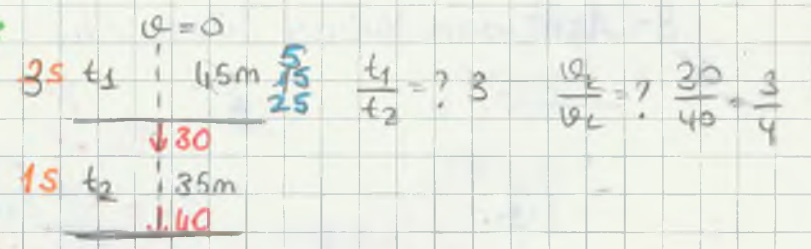 ϑ = 0
3s t1 45m 5 15 25 t1/t2 = ? 3 ϑ1/ϑ2 = ? 30/40 = 3/4
↓30
1s t2 35m
↓40